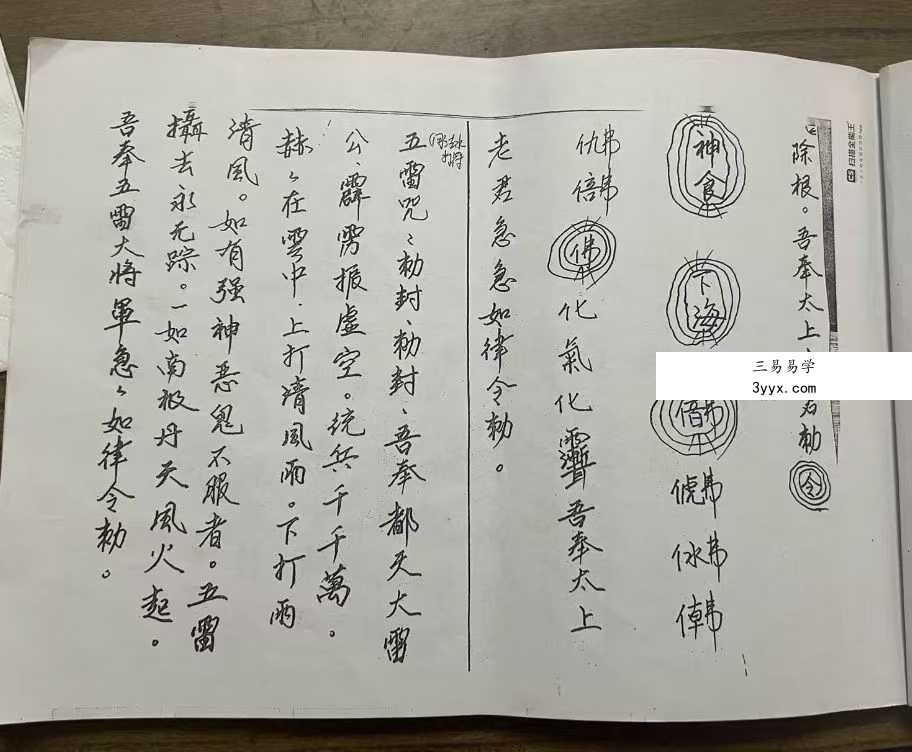 除根。吾奉太上
勅
令
神食
下海
化氣化
吾奉太上
老君急急如律令勅。
五雷咒：勅封、勅封、吾奉都天大雷
公、霹雳振虚空。统兵千千萬。
赫々在雲中、上打清風雨。下打雨
清風。如有强神恶鬼不服者。五雷
攝去永无踪。一如南极丹天風火起。
吾奉五雷大将軍急々如律令勅。
三易易学
3yyx.com
扫描全能王